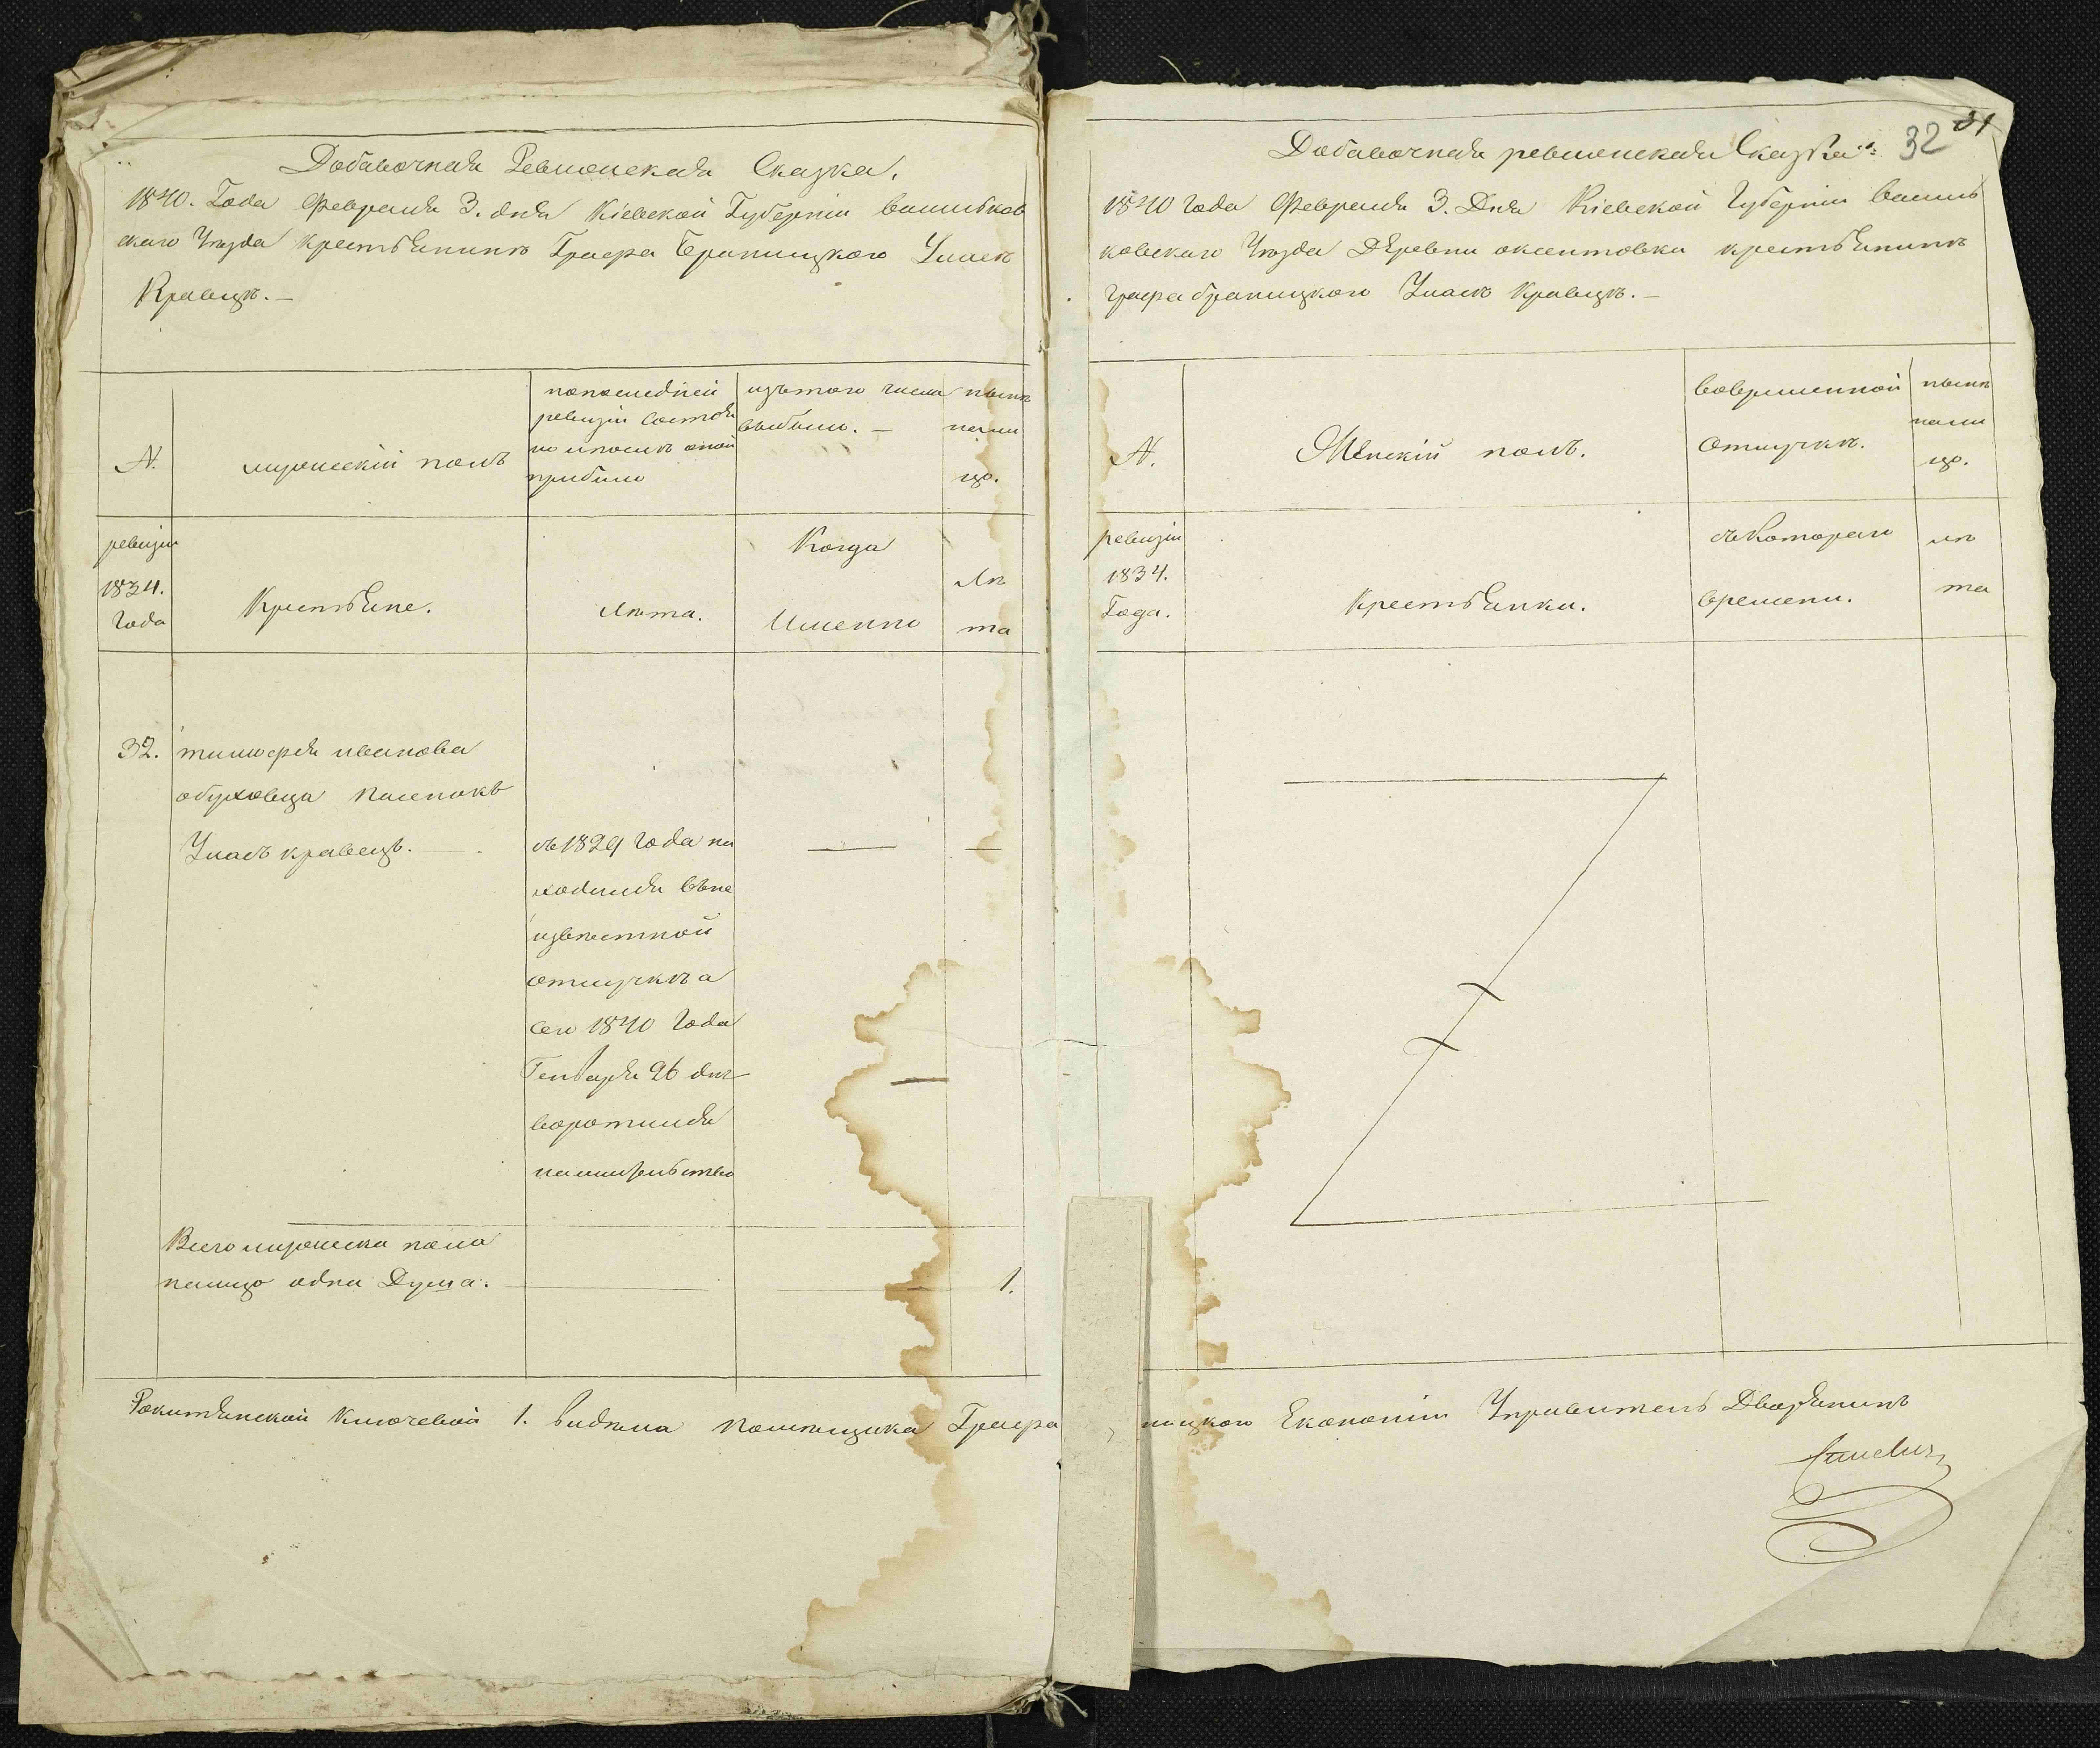 Добавочная Ревизская Сказка.
1840. Года Февраля 3. дня Кіевской Губерніи Васильков
скаго Уѣзда крестьянинъ Графа Браницкого Уласъ
Кравецъ. —
№.
мужескій полъ
попоследней
ревизіи Состоя
ло ипослѣ оной
прибыло
изътого числа
выбыло. —
нынѣ
нали
цо.
ревизіи
1834.
Года
Крестьяне.
Лѣта.
Когда
Именно
лѣ
та
32.
тимофея иванова
обуховца пасенокъ
Уласъ кравецъ. —
съ 1829 Года на
ходился вне
извѣстной
отлучкѣ а
сего 1840 Года
Генваря 26 дня
воротился
нажительство
Всего мужеска пола
налицо одна Душа.
1.
Рокитянской Ключевой 1. видѣла помѣщика Графа
32
31
Добавочная ревизская Сказка
1840 Года Февраля 3. Дня Кіевской Губерніи Василь
ковскаго Уѣзда Деревни оксентовки крестьянинъ
графа браницкого Уласъ Кравецъ. —
№.
Женскій полъ.
вовременной
отлучкѣ.
нынѣ
нали
цо.
ревизіи
1834.
Года.
Крестьянки.
съкотораго
времени.
лѣ
та
ницкого Економіи Управитель Дворянинъ